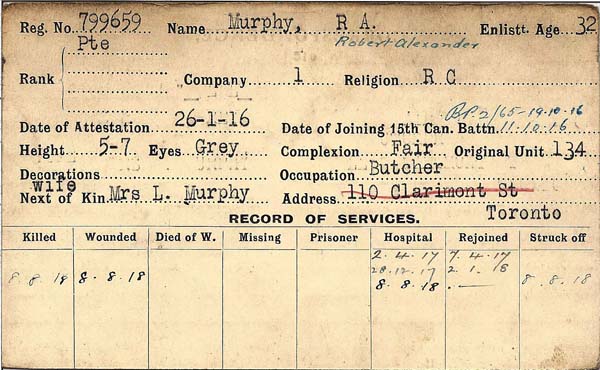 Reg. No. 799659 Name Murphy, R A. Enlistt. Age 32
Pte Robert Alexander
Rank Company 1 Religion R C
B.P. 2/65-19.10.16
Date of Attestation 26-1-16 Date of Joining 15th Can. Battn. 11.10.16
Height 5-7 Eyes Grey Complexion Fair Original Unit 134
Decorations Occupation Butcher
wife
Next of Kin Mrs L. Murphy Address 110 Clarimont St
Toronto
RECORD OF SERVICES.
Killed Wounded Died of W. Missing Prisoner Hospital Rejoined Struck off
2.4.17 7.4.17
28.12.17 2.1.18
8.8.18 8.8.18 8.8.18 .— 8.8.18